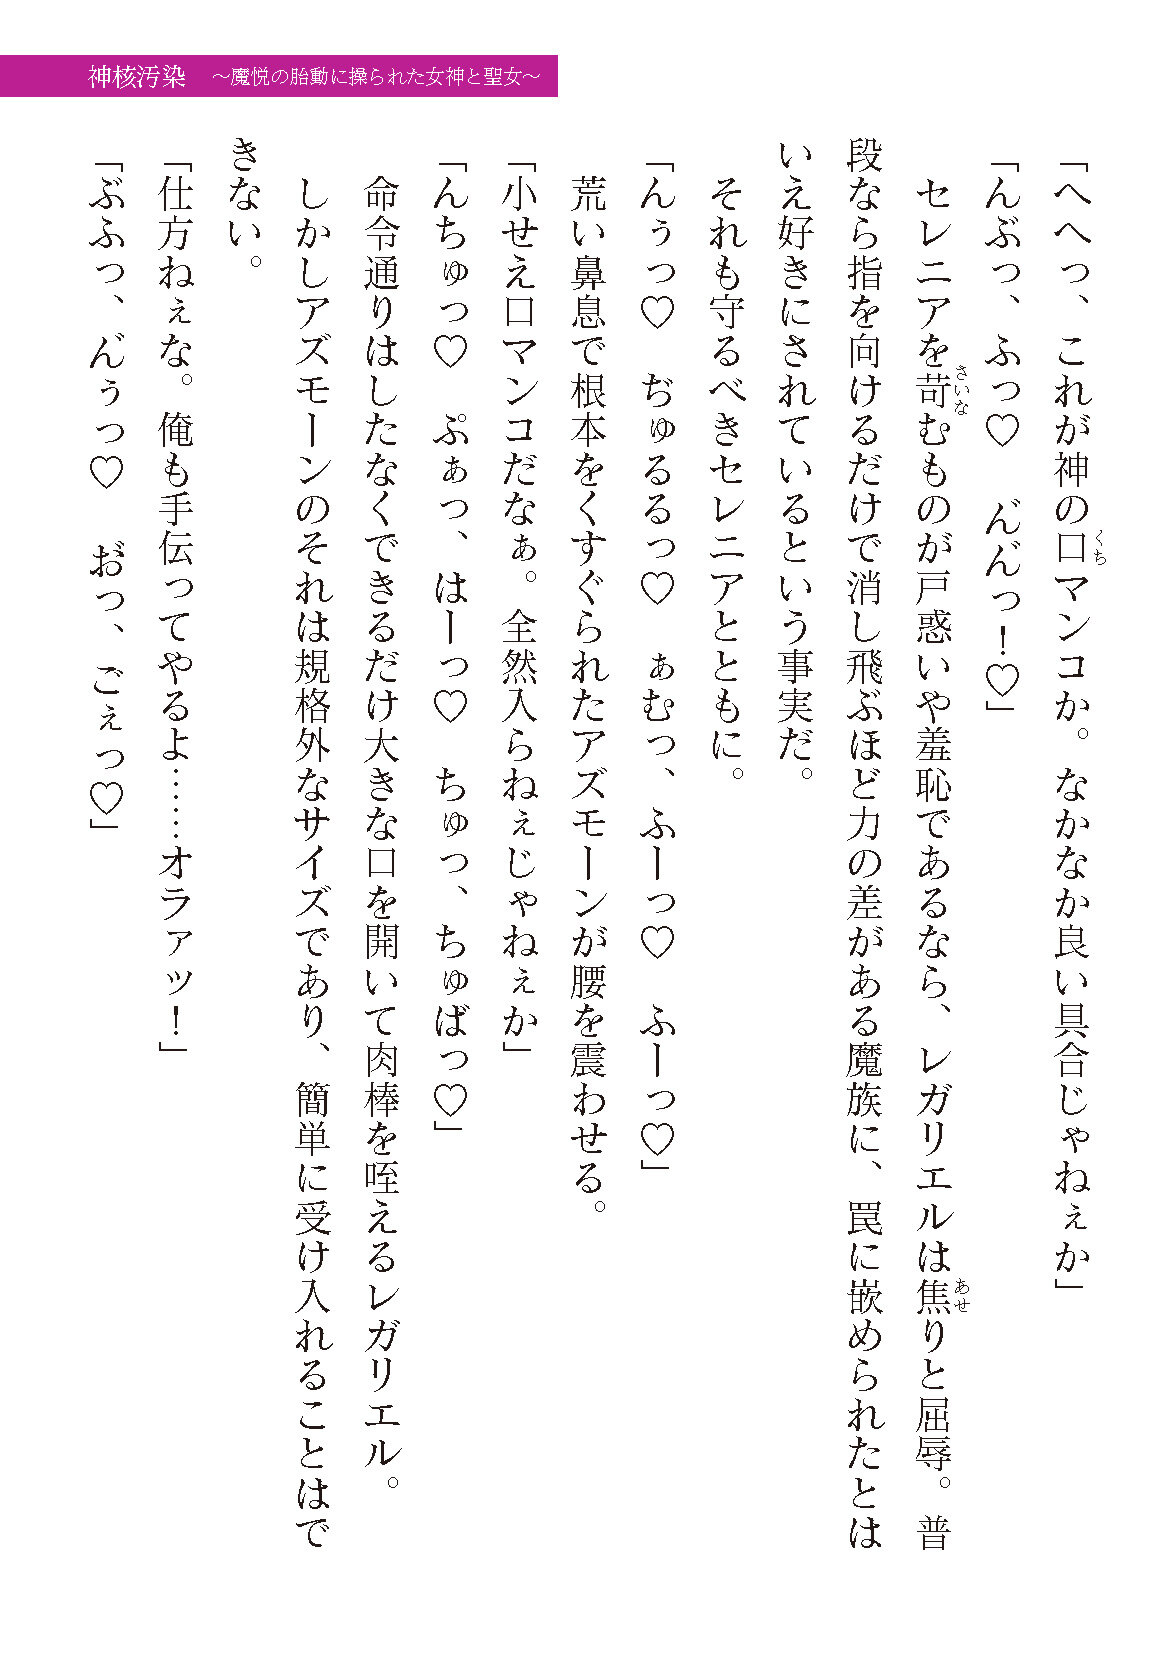 神核汚染　～魔悦の胎動に操られた女神と聖女～
「へへっ、これが神の口マンコか。なかなか良い具合じゃねぇか」
「んぶっ、ふっ♡　ん゛ん゛っ！♡」
　セレニアを苛むものが戸惑いや羞恥であるなら、レガリエルは焦りと屈辱。普
段なら指を向けるだけで消し飛ぶほど力の差がある魔族に、罠に嵌められたとは
いえ好きにされているという事実だ。
　それも守るべきセレニアとともに。
「んぅっ♡　ぢゅるるっ♡　ぁむっ、ふーっ♡　ふーっ♡」
　荒い鼻息で根本をくすぐられたアズモーンが腰を震わせる。
「小せえ口マンコだなぁ。全然入らねぇじゃねぇか」
「んちゅっ♡　ぷぁっ、はーっ♡　ちゅっ、ちゅばっ♡」
　命令通りはしたなくできるだけ大きな口を開いて肉棒を咥えるレガリエル。
　しかしアズモーンのそれは規格外なサイズであり、簡単に受け入れることはで
きない。
「仕方ねぇな。俺も手伝ってやるよ……オラァッ！」
「ぶふっ、ん゛ぅっ♡　お゛っ、ごぇっ♡」
くち
さいな
あせ